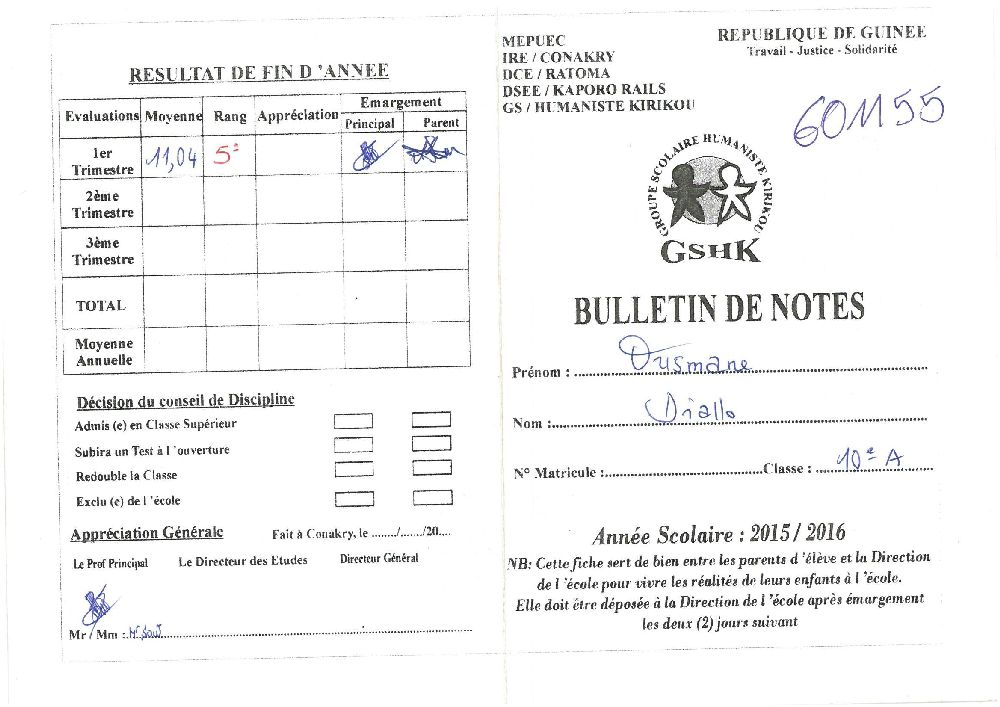 RESULTAT DE FIN D 'ANNEE
Evaluations Moyenne Rang Appréciation Emargement
Principal Parent
1er Trimestre 11,04 5e
2ème Trimestre
3ème Trimestre
TOTAL
Moyenne Annuelle
Décision du conseil de Discipline
Admis (e) en Classe Supérieur
Subira un Test à l 'ouverture
Redouble la Classe
Exclu (e) de l 'école
Appréciation Générale Fait à Conakry, le ......../......./20....
Le Prof Principal Le Directeur des Etudes Directeur Général
Mr / Mm :
MEPUEC
IRE / CONAKRY
DCE / RATOMA
DSEE / KAPORO RAILS
GS / HUMANISTE KIRIKOU
REPUBLIQUE DE GUINEE
Travail - Justice - Solidarité
601155
GROUPE SCOLAIRE HUMANISTE KIRIKOU
GSHK
BULLETIN DE NOTES
Prénom : Ousmane
Nom : Diallo
N° Matricule : Classe : 10e A
Année Scolaire : 2015 / 2016
NB: Cette fiche sert de bien entre les parents d 'élève et la Direction
de l 'école pour vivre les réalités de leurs enfants à l 'école.
Elle doit être déposée à la Direction de l 'école après émargement
les deux (2) jours suivant